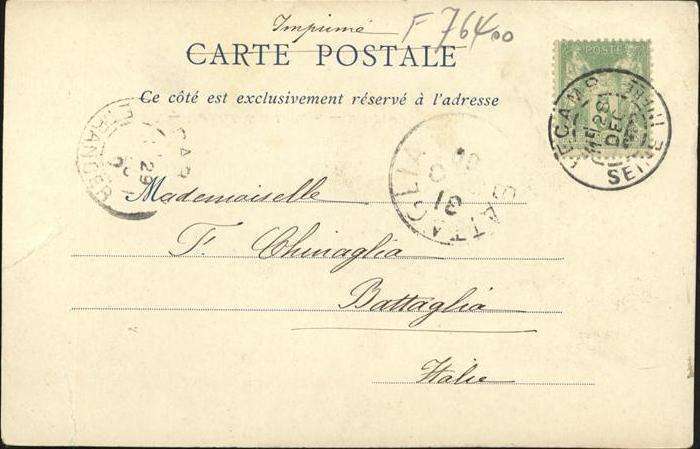 Imprimé F 7640
CARTE POSTALE
Ce côté est exclusivement réservé à l'adresse
POSTE
FÉCAMP
28
DEC
SEINE INFRE
ETRANGER
29
BATTAGLIA
31
Mademoiselle
F. Chinaglia
Battaglia
Italie